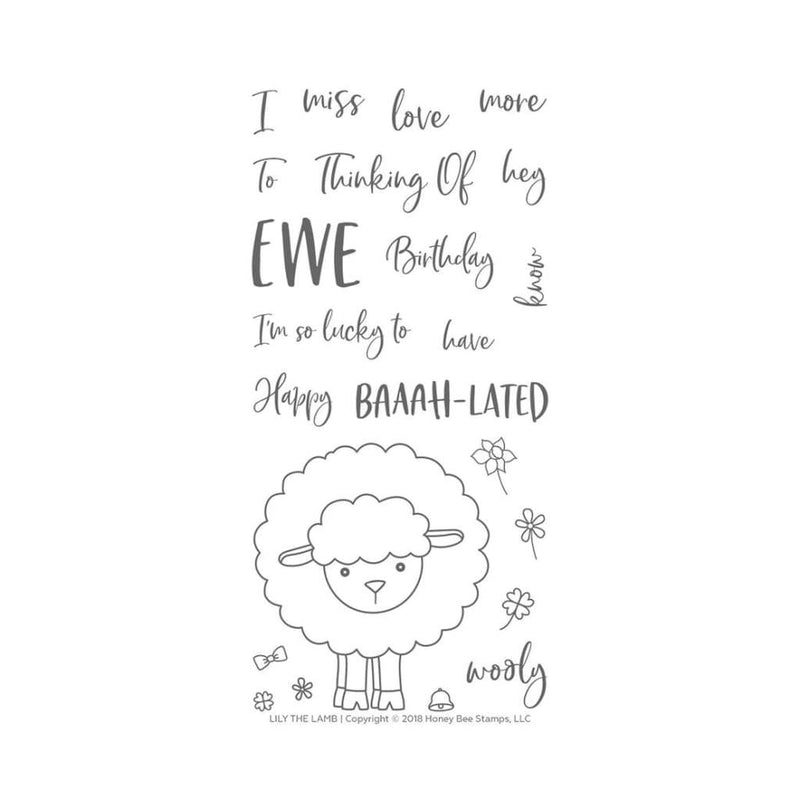 I miss love more
To Thinking Of hey
EWE Birthday know
I'm so lucky to have
Happy BAAAH-LATED
wooly
LILY THE LAMB | Copyright © 2018 Honey Bee Stamps, LLC